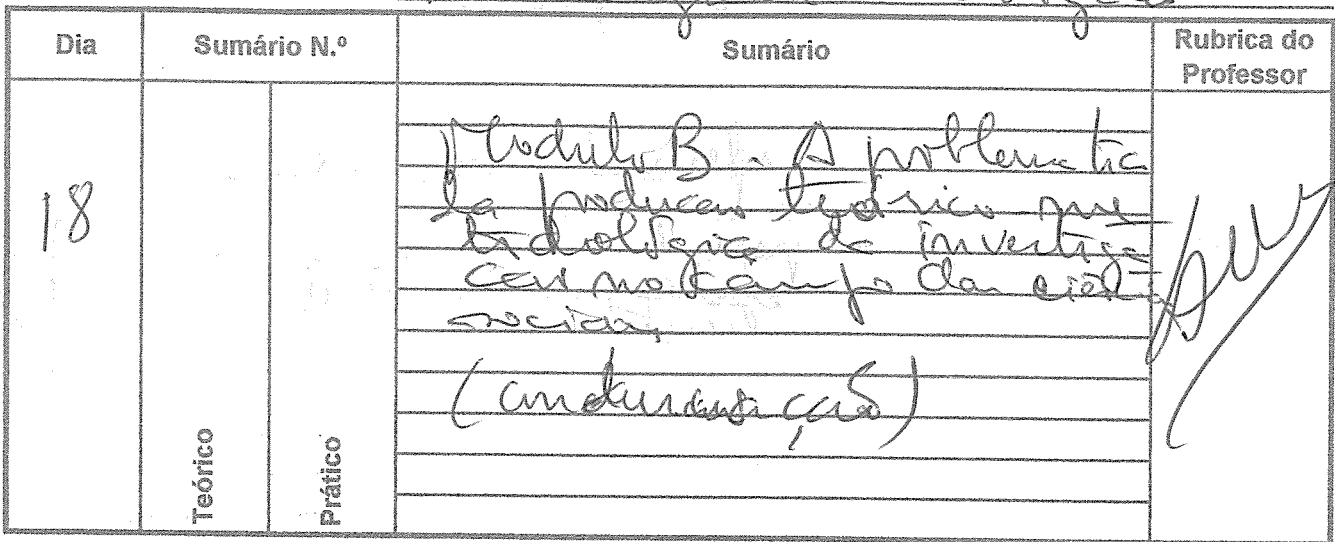 Dia
Sumário N.º
Sumário
Rubrica do
Professor
18
Teórico
Prático
Modulo B. A problematica
da producao teórico me
todologica da investiga
cao no campo das ciên
sociais,